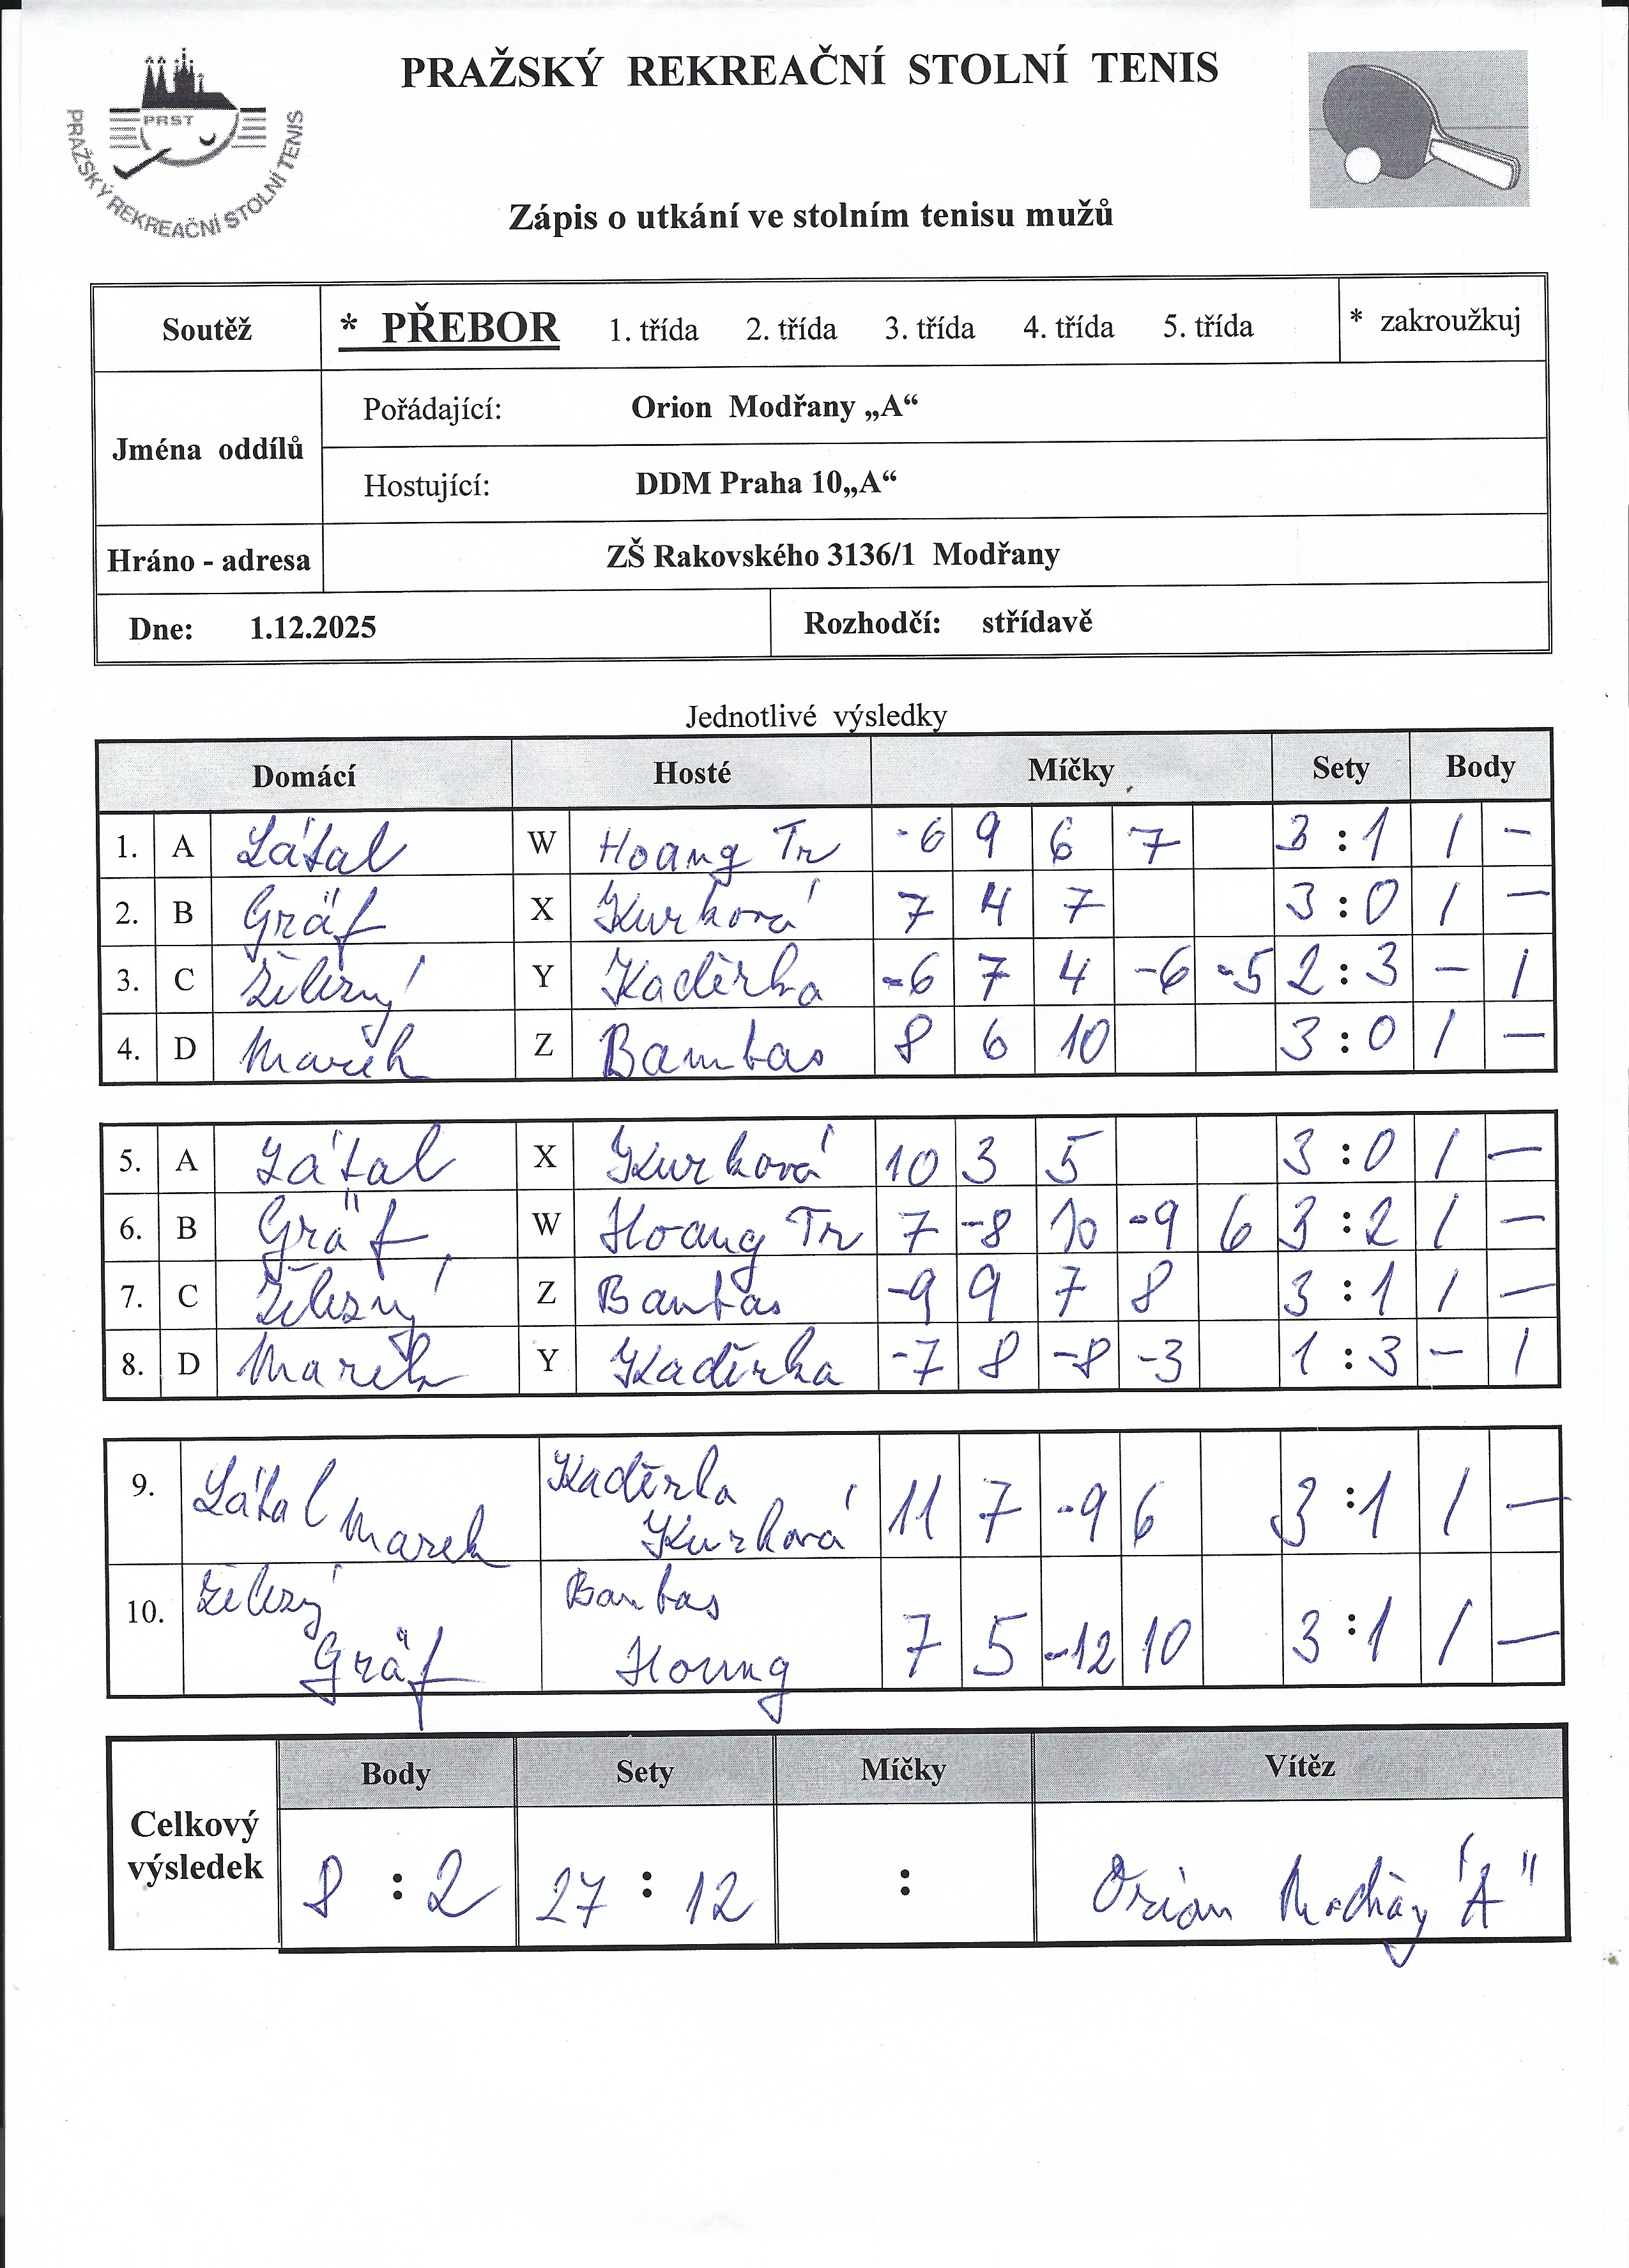 PRAŽSKÝ REKREAČNÍ STOLNÍ TENIS
PRST
PRAŽSKÝ REKREAČNÍ STOLNÍ TENIS
Zápis o utkání ve stolním tenisu mužů
Soutěž * PŘEBOR 1. třída 2. třída 3. třída 4. třída 5. třída * zakroužkuj
Jména oddílů
Pořádající: Orion Modřany „A“
Hostující: DDM Praha 10„A“
Hráno - adresa ZŠ Rakovského 3136/1 Modřany
Dne: 1.12.2025 Rozhodčí: střídavě
Jednotlivé výsledky
Domácí Hosté Míčky Sety Body
1. A Látal W Hoang Tr -6 9 6 7 3 : 1 1 –
2. B Gräf X Kurková 7 4 7 3 : 0 1 –
3. C Železný Y Kaděrka -6 7 4 -6 -5 2 : 3 – 1
4. D Marek Z Bambas 8 6 10 3 : 0 1 –
5. A Látal X Kurková 10 3 5 3 : 0 1 –
6. B Gräf W Hoang Tr 7 -8 10 -9 6 3 : 2 1 –
7. C Železný Z Bambas -9 9 7 8 3 : 1 1 –
8. D Marek Y Kaděrka -7 8 -8 -3 1 : 3 – 1
9. Látal Marek Kaděrka Kurková 11 7 -9 6 3 : 1 1 –
10. Železný Gräf Bambas Hoang 7 5 -12 10 3 : 1 1 –
Celkový výsledek
Body Sety Míčky Vítěz
8 : 2 27 : 12 : Orion Modřany "A"